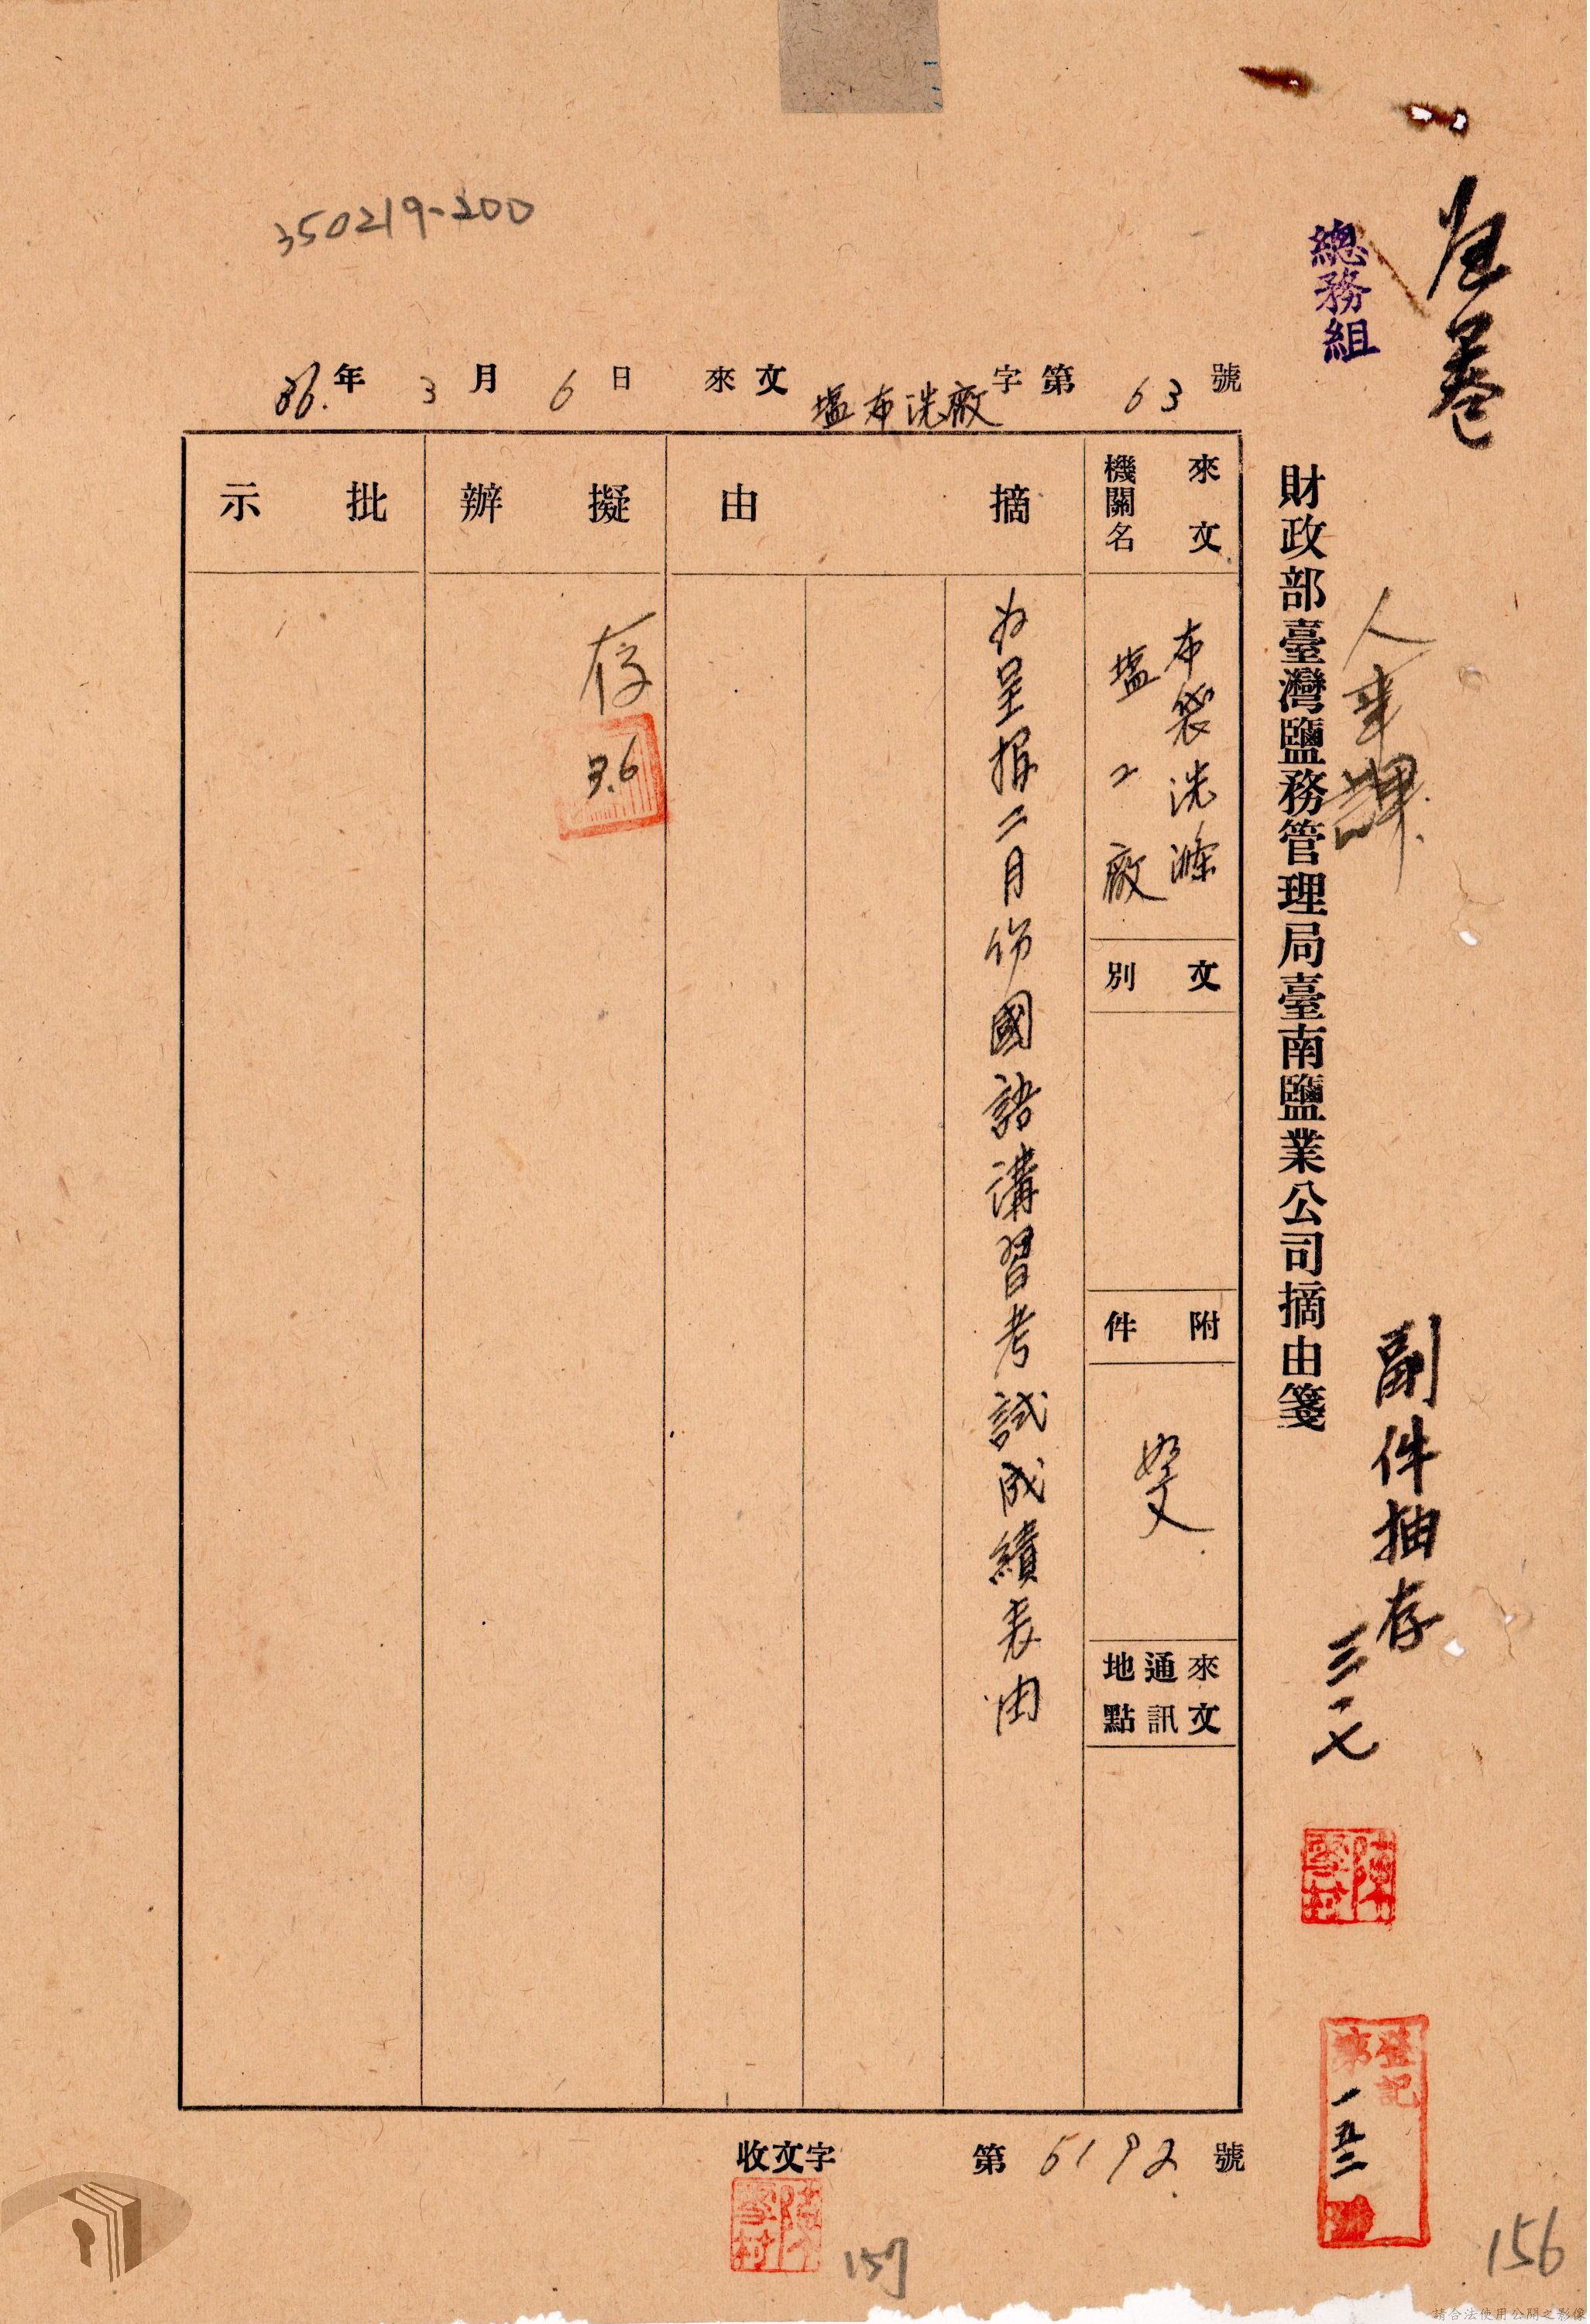 350219-200
卷
總務組
人事課
副件抽存
三、七
財政部臺灣鹽務管理局臺南鹽業公司摘由箋
36.年3月6日來文塩布洗廠字第63號
來文機關名
布袋洗滌
塩工廠
文別
附件
如文
來文通訊地點
摘由
為呈報二月份國語講習考試成績表由
擬辦
存
3.6
批示
收文字第6192號
登記
第一五二號
157
156
請合法使用公開之影像